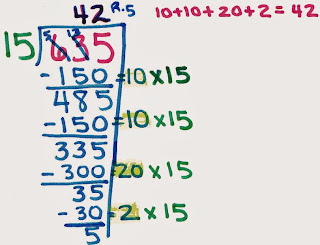 42 R.5 10+10+20+2=42
5 13
15 635
-150 =10 x 15
485
-150 =10 x 15
335
-300 =20 x 15
35
-30 =2 x 15
5